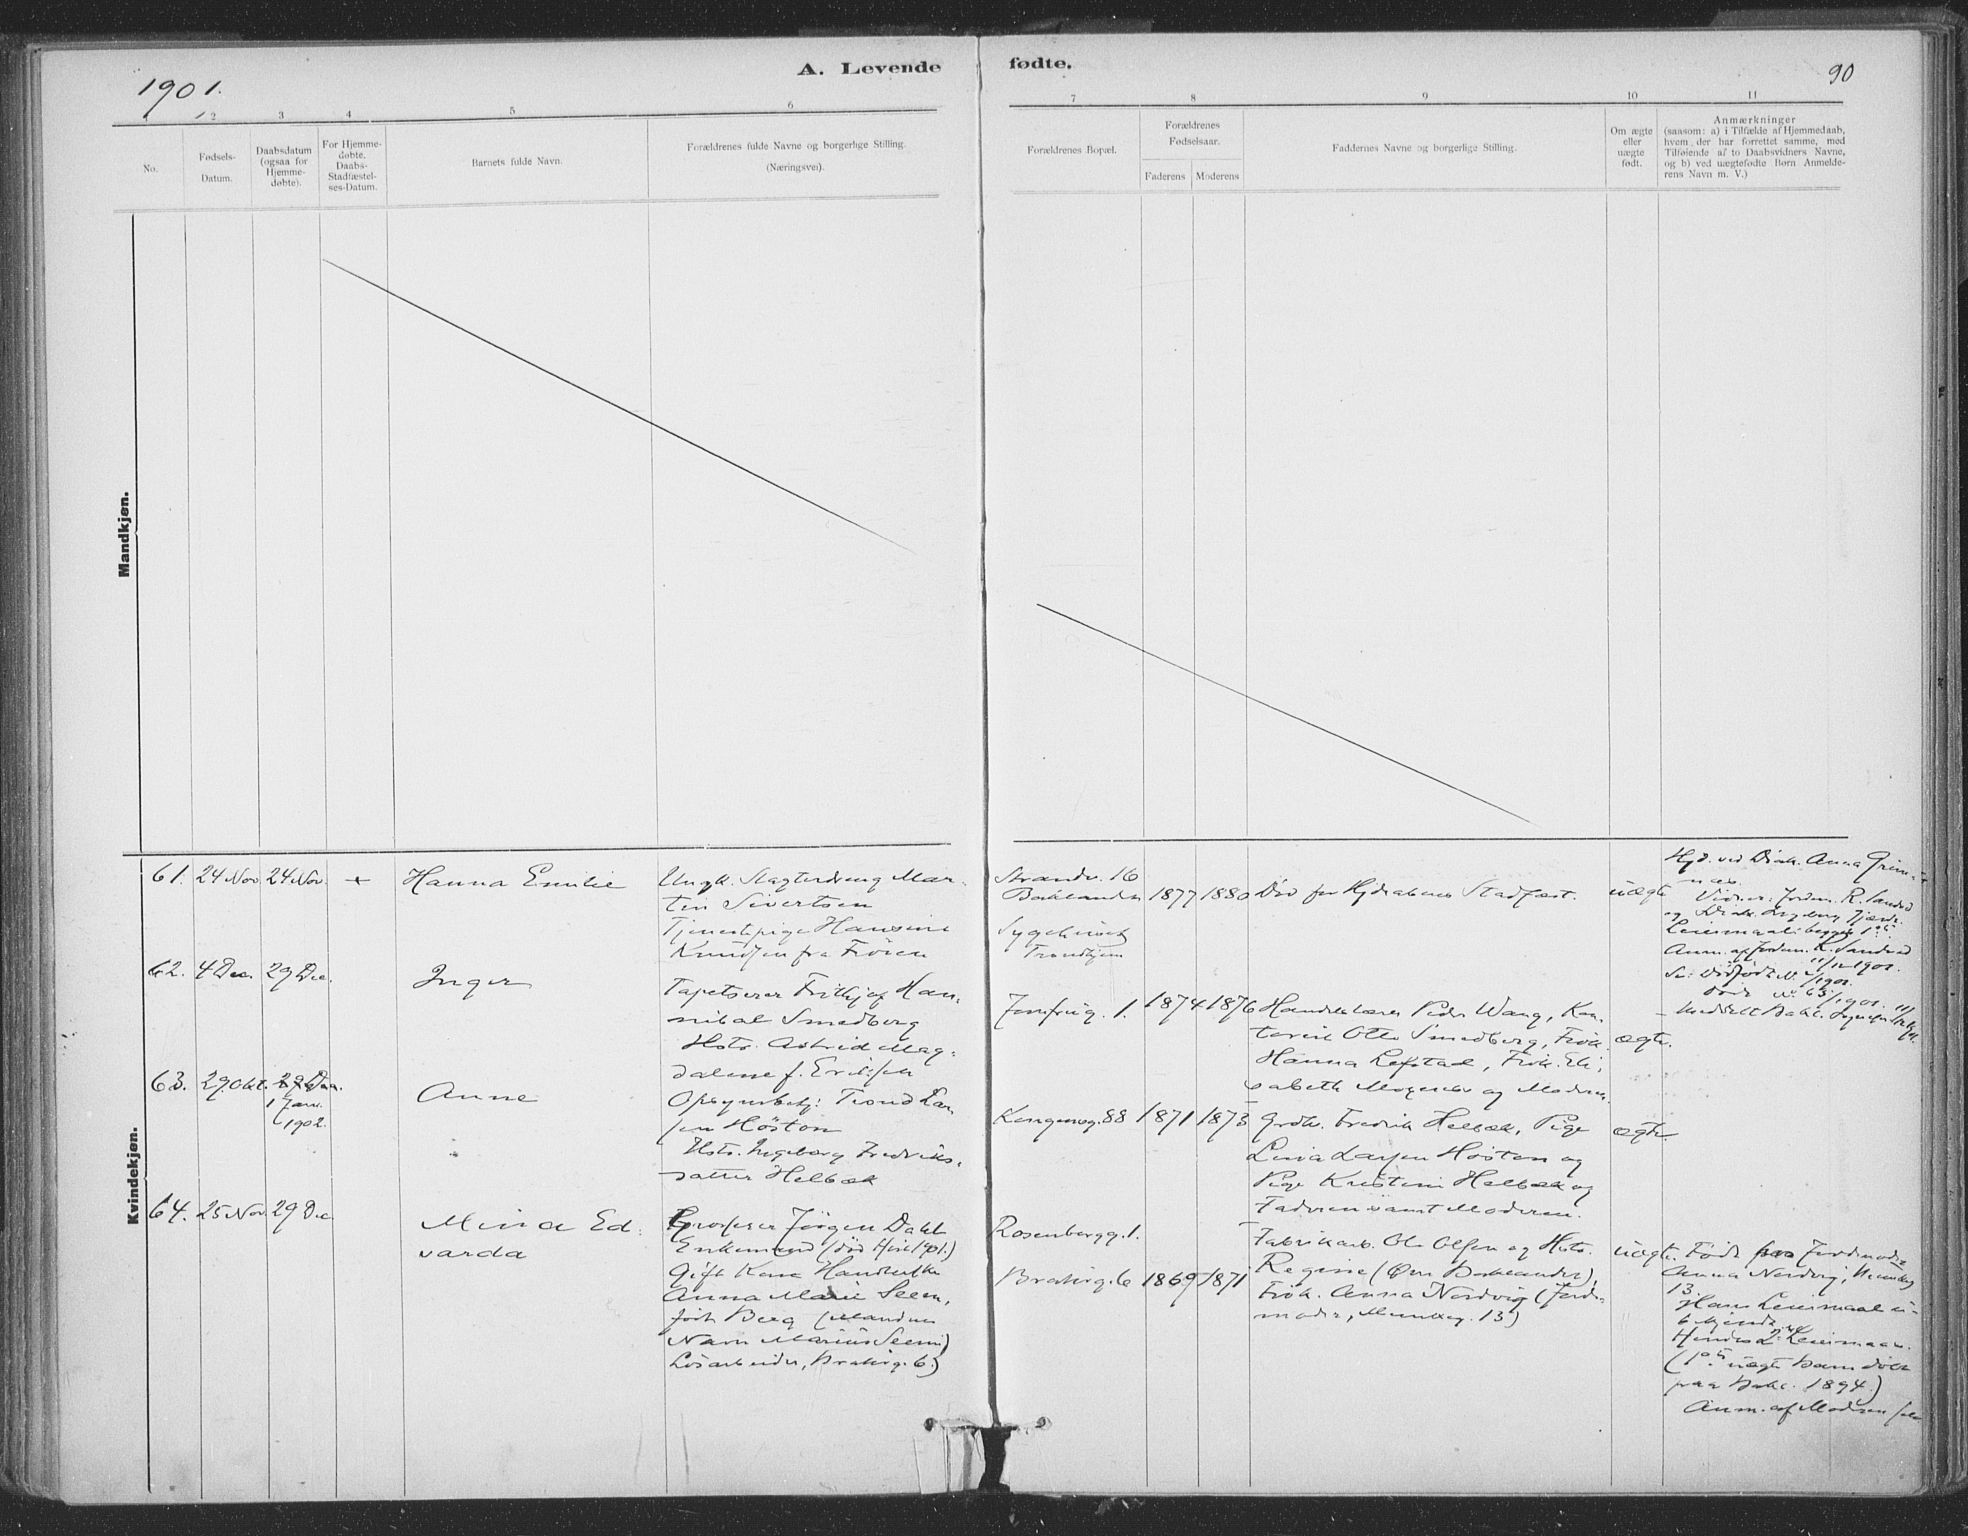 1901.
A. Levende
fødte.
90
1 2 3 4 5 6
7 8 9 10 11
No.
Fødsels-
Datum.
Daabsdatum
(ogsaa for
Hjemme-
døbte).
For Hjemme-
døbte.
Daabs-
Stadfæstel-
ses-Datum.
Barnets fulde Navn.
Forældrenes fulde Navne og borgerlige Stilling.
(Næringsvei).
Forældrenes Bopæl.
Forældrenes
Fødselsaar.
Faderens
Moderens
Faddernes Navne og borgerlige Stilling.
Om ægte
eller
uægte
født.
Anmærkninger
(saasom: a) i Tilfælde af Hjemmedaab,
hvem, der har forrettet samme, med
Tilføiende af to Daabsvidners Navne,
og b) ved uægtefødte Børn Anmelde-
rens Navn m. V.)
Mandkjøn.
Kvindekjøn.
61. 24 Nov. 24 Nov. +
Hanna Emilie
Ungk. Slagterdreng Mar-
tin Sivertsen
Tjenestepige Hansine
Knudsen fra Frøien
Strandv. 16
Baklandet
Sygehuset
Trondhjem
1877 1880
Død før Hjdaabens Stadfæst.
uægte
Hjd. ved Diak. Anna
Vidner: Jordm. R. Sandrød
og Diak. Ingeborg
Leiermaal: begges 1ste
Anm. af Jordm. R. Sandrød
11/12 1901.
62. 4 Dec. 29 Dec.
Inger
Tapetserer Frithjof Han-
nibal Smedberg
Hstr. Astrid Mag-
dalene f. Eriksen
Jomfrug. 1.
1874 1876
Handelslærer Peder Wang, Kon-
torist Olle Smedberg, Frøk.
Hanna Lefstad, Frøk. Eli-
sabeth og Moderen.
ægte.
63. 29. Okt. 29 Dec.
1 Janr.
1902.
Anne
Opsynsbetj: Trond Lar-
sen Høston
Hstr. Ingeborg Fredriks-
datter Helbæk
Kongensg. 88
1871 1873
Grdb. Fredrik Helbæk, Pige
Larsen Høston og
Pige Kristine Helbæk og
Faderen samt Moderen.
ægte
64. 25 Nov. 29 Dec.
Mina Ed-
varda
Grosserer Jørgen Dahl
Enkemand (død 1901.)
Gift Kone
Anna Marie Seem,
født Berg (Mandens
Navn Marius Seem)
Løsarbeider, Bratørg. 6.)
Rosenborgg. 1.
Bratørg. 6
1869 1871
Fabrikarb. Ole Olsen og Hstr.
Regine (Øvre Baklandet),
Frøk. Anna Nordvig (Jord-
moder, Munkeg. 13)
uægte.
Født hos Jordmoder
Anna Nordvig, Munkeg.
13.
Hans Leiermaal u-
bekjendt
Hendes 2det Leiermaal.
(1ste uægte Barn døbt
paa Bakl. 1894.)
Anm. af Moderen selv